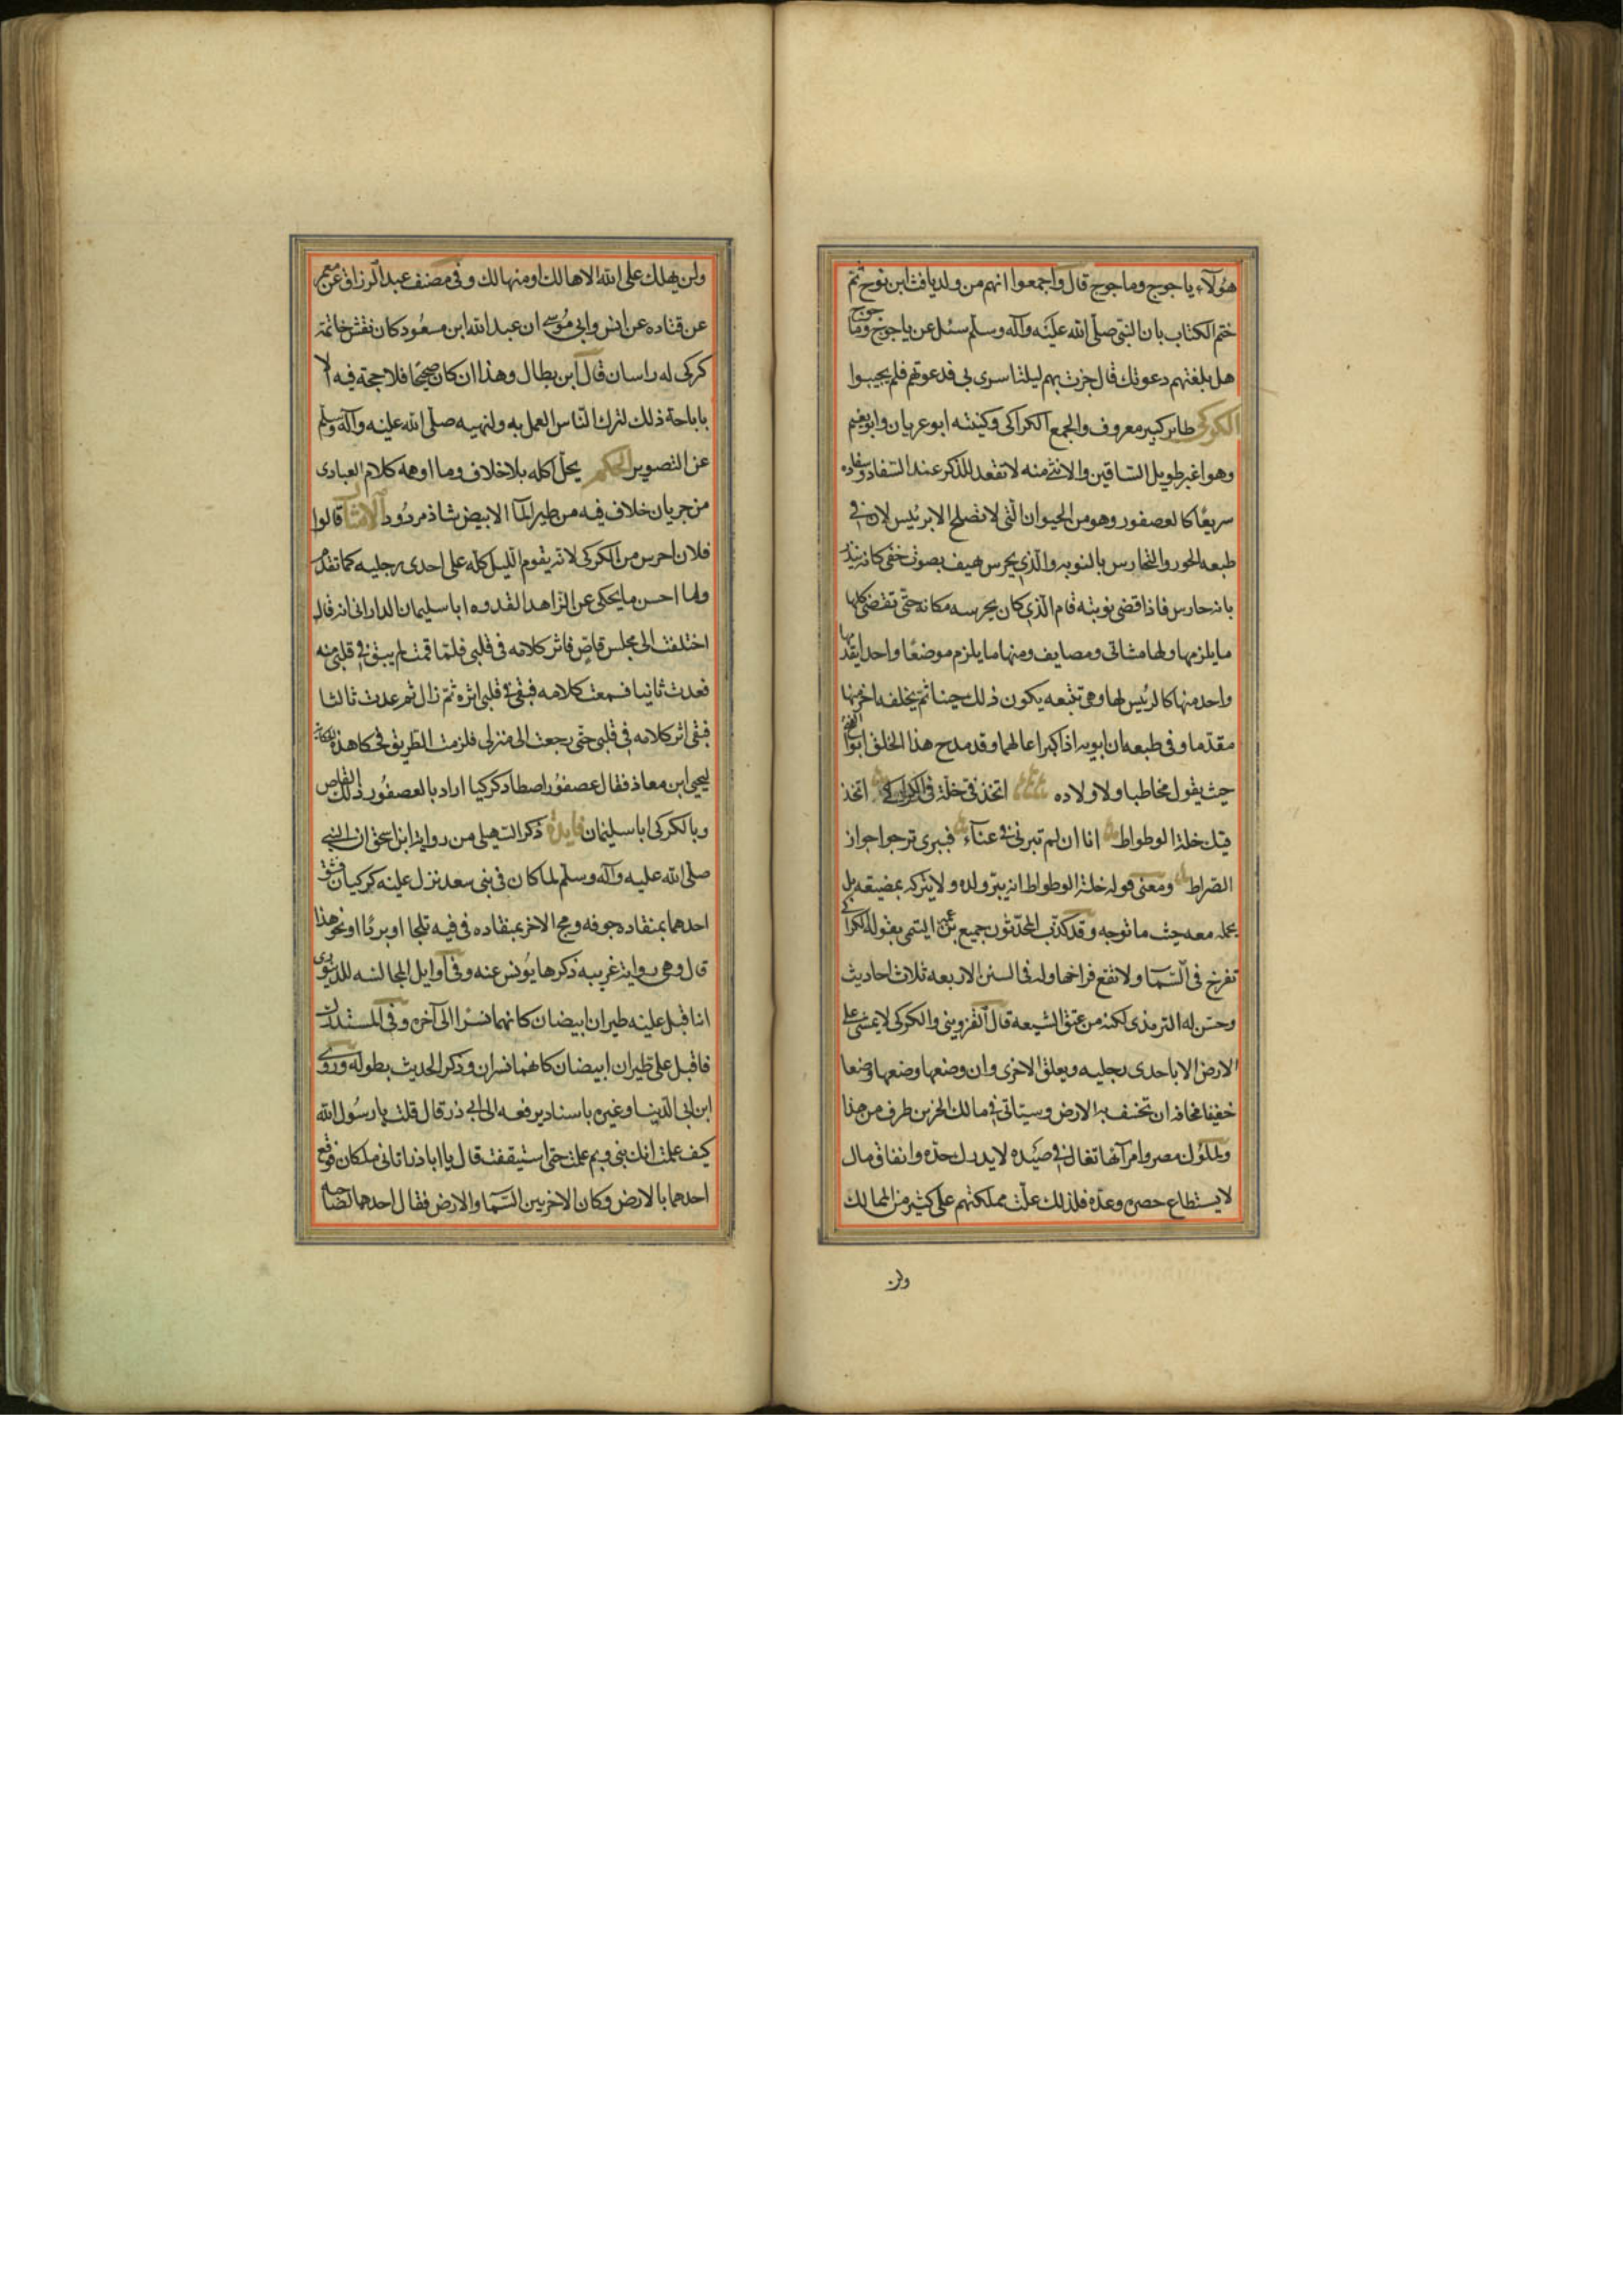 هؤلآء ياجوج وماجوج قال واجمعوا انهم من ولد يافث ابن نوح ثم
ختم الكتاب بان النبى صلى الله عليه وآله وسلم سئل عن ياجوج وماجوج
هل بلغتهم دعوتك قال جزت بهم ليلة اسرى بى فدعوتهم فلم يجيبوا
الكركى طاير كبير معروف والجمع الكراكى وكنيته ابو عريان وابو نعيم
وهو اغبر طويل الساقين والانثى منه لا تقعد للذكر عند السفاد وسفاده
سريعا كالعصفور وهو من الحيوان التى لا تصلح الا برئيس لان فى
طبعه الحور والتحارس بالنوبه والذى يحرس يهيف بصوت خفى كانه ينذر
بانه حارس فاذا قضى نوبته قام الذى كان يحرسه مكانه حتى تقضى كلها
ما يلزمها ولها مشاتى ومصايف ومنها ما يلزم موضعا واحدا يقدمها
واحد منها كالرئيس لها وهى تتبعه يكون ذلك حينا ثم يخلفه اخر منها
مقدما وفى طبعه ان ابويه اذا كبرا عالهما وقد مدح هذا الخلق ابو الفتح
حيث يقول مخاطبا ولاولاده اتخذ فى خلة فى الكراكى اتخذ
فيك خلة الوطواط انا ان لم تبرنى فى عنآء فببرى ترجوا جواز
الصراط ومعنى قوله خلة الوطواط انه يبر ولده ولا يتركه بمضيعه بل
يحمله معه حيث ما توجه وقد كذب المحدثون جميع بن عمير التيمى بقوله الكراكى
تفرخ فى السما ولا تقع فراخها وله فى السنن الاربعه ثلاث احاديث
وحسن له الترمذى لكنه من عتق الشيعه قال القزوينى والكركى لا يمشى على
الارض الا باحدى رجليه ويعلق الاخرى وان وضعها وضعها وضعا
خفيفا مخافة ان تخسف به الارض وسيتاتى فى مالك الحزين طرف من هذا
ولملوك مصر وامرآئها تغال فى صيده لا يدرك حده وانفاق مال
لا يستطاع حصره وعده فلذلك علت مملكتهم على كثير من الممالك
ولن
ولن يهلك على الله الا هالك او منهالك وفى مصنف عبد الرزاق عن معمر
عن قتاده عن انس وابى موسى ان عبد الله ابن مسعود كان نقش خاتمه
كركى له راسان قال ابن بطال وهذا ان كان صحيحا فلا حجة فيه الا
باباحة ذلك لترك الناس العمل به ولنهيه صلى الله عليه وآله وسلم
عن التصوير الحكم يحل اكله بلا خلاف وما اوهمه كلام العبادى
من جريان خلاف فيه من طير المآ الابيض شاذ مردود الامثال قالوا
فلان احرس من الكركى لانه يقوم الليل كله على احدى رجليه كما تقدم
وما احسن ما يحكى عن الزاهد القدوه ابا سليمان الدارانى انه قال
اختلفت الى مجلس قاص فاثر كلامه فى قلبى فلما قمت لم يبق فى قلبى منه
فعدت ثانيا فسمعت كلامه فبقى فى قلبى اثره ثم زال ثم عدت ثالثا
فبقى اثر كلامه فى قلبى حتى رجعت الى منزلى فلزمت الطريق فحكا هذه الحكاية
ليحيى ابن معاذ فقال عصفور اصطاد كركيا اراد بالعصفور ذلك القاص
وبالكركى ابا سليمان فايدة ذكر السهيلى من رواية ابن اسحق ان النبى
صلى الله عليه وآله وسلم لما كان فى بنى سعد نزل عليه كركيان فشق
احدهما بمنقاده جوفه ومج الاخر بمنقاده فى فيه ثلجا او بردا او نحو هذا
قال وهى رواية غريبه ذكرها يونس عنه وفى آوايل المجالسه للدينورى
انا قبل عليه طيران ابيضان كانهما نسرا الى آخره وفى المستدرك
فاقبل على طيران ابيضان كاهما نسران وذكر الحديث بطوله وروى
ابن ابى الدنيا وغيره باسناد يرفعه الى ابى ذر قال قلت يا رسول الله
كيف علمت انك نبى وبم علمت حتى استيقفت قال يا ابا ذر اتانى ملكان فوقع
احدهما بالارض وكان الاخر بين السما والارض فقال احدهما لصاحبه